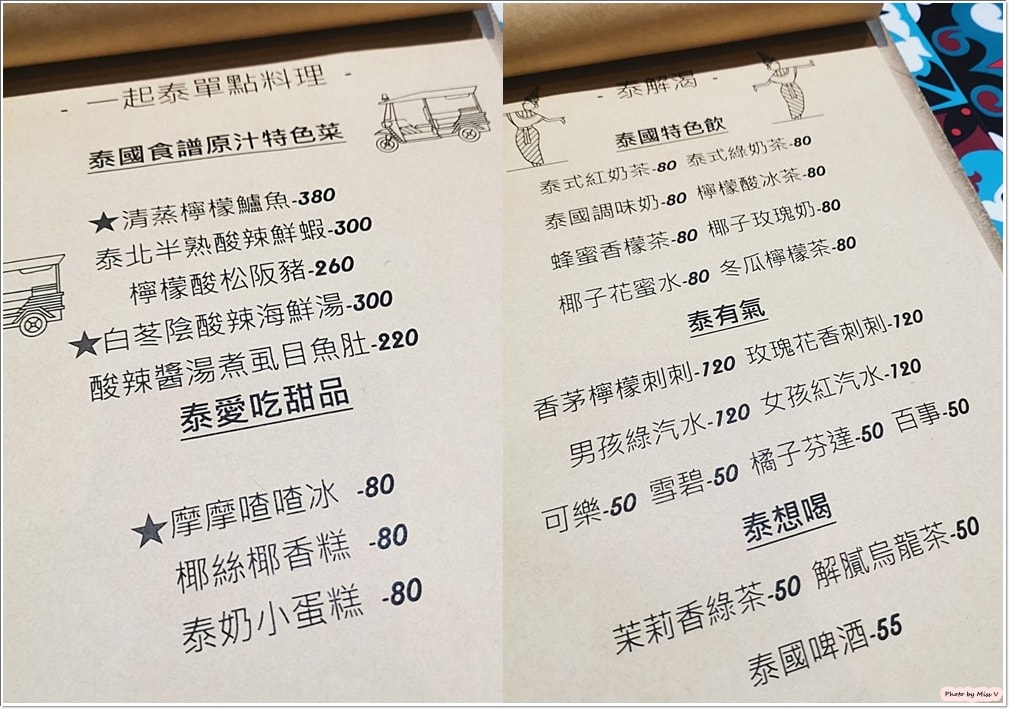 - 一起泰單點料理 -
泰國食譜原汁特色菜
★清蒸檸檬鱸魚-380
泰北半熟酸辣鮮蝦-300
檸檬酸松阪豬-260
★白苳陰酸辣海鮮湯-300
酸辣醬湯煮虱目魚肚-220
泰愛吃甜品
★摩摩喳喳冰 -80
椰絲椰香糕 -80
泰奶小蛋糕 -80
- 泰解渴 -
泰國特色飲
泰式紅奶茶-80 泰式綠奶茶-80
泰國調味奶-80 檸檬酸冰茶-80
蜂蜜香檬茶-80 椰子玫瑰奶-80
椰子花蜜水-80 冬瓜檸檬茶-80
泰有氣
香茅檸檬刺刺-120 玫瑰花香刺刺-120
男孩綠汽水-120 女孩紅汽水-120
可樂-50 雪碧-50 橘子芬達-50 百事-50
泰想喝
茉莉香綠茶-50 解膩烏龍茶-50
泰國啤酒-55
Photo by Miss V